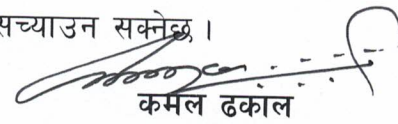 सच्याउन सक्नेछ ।
कमल ढकाल